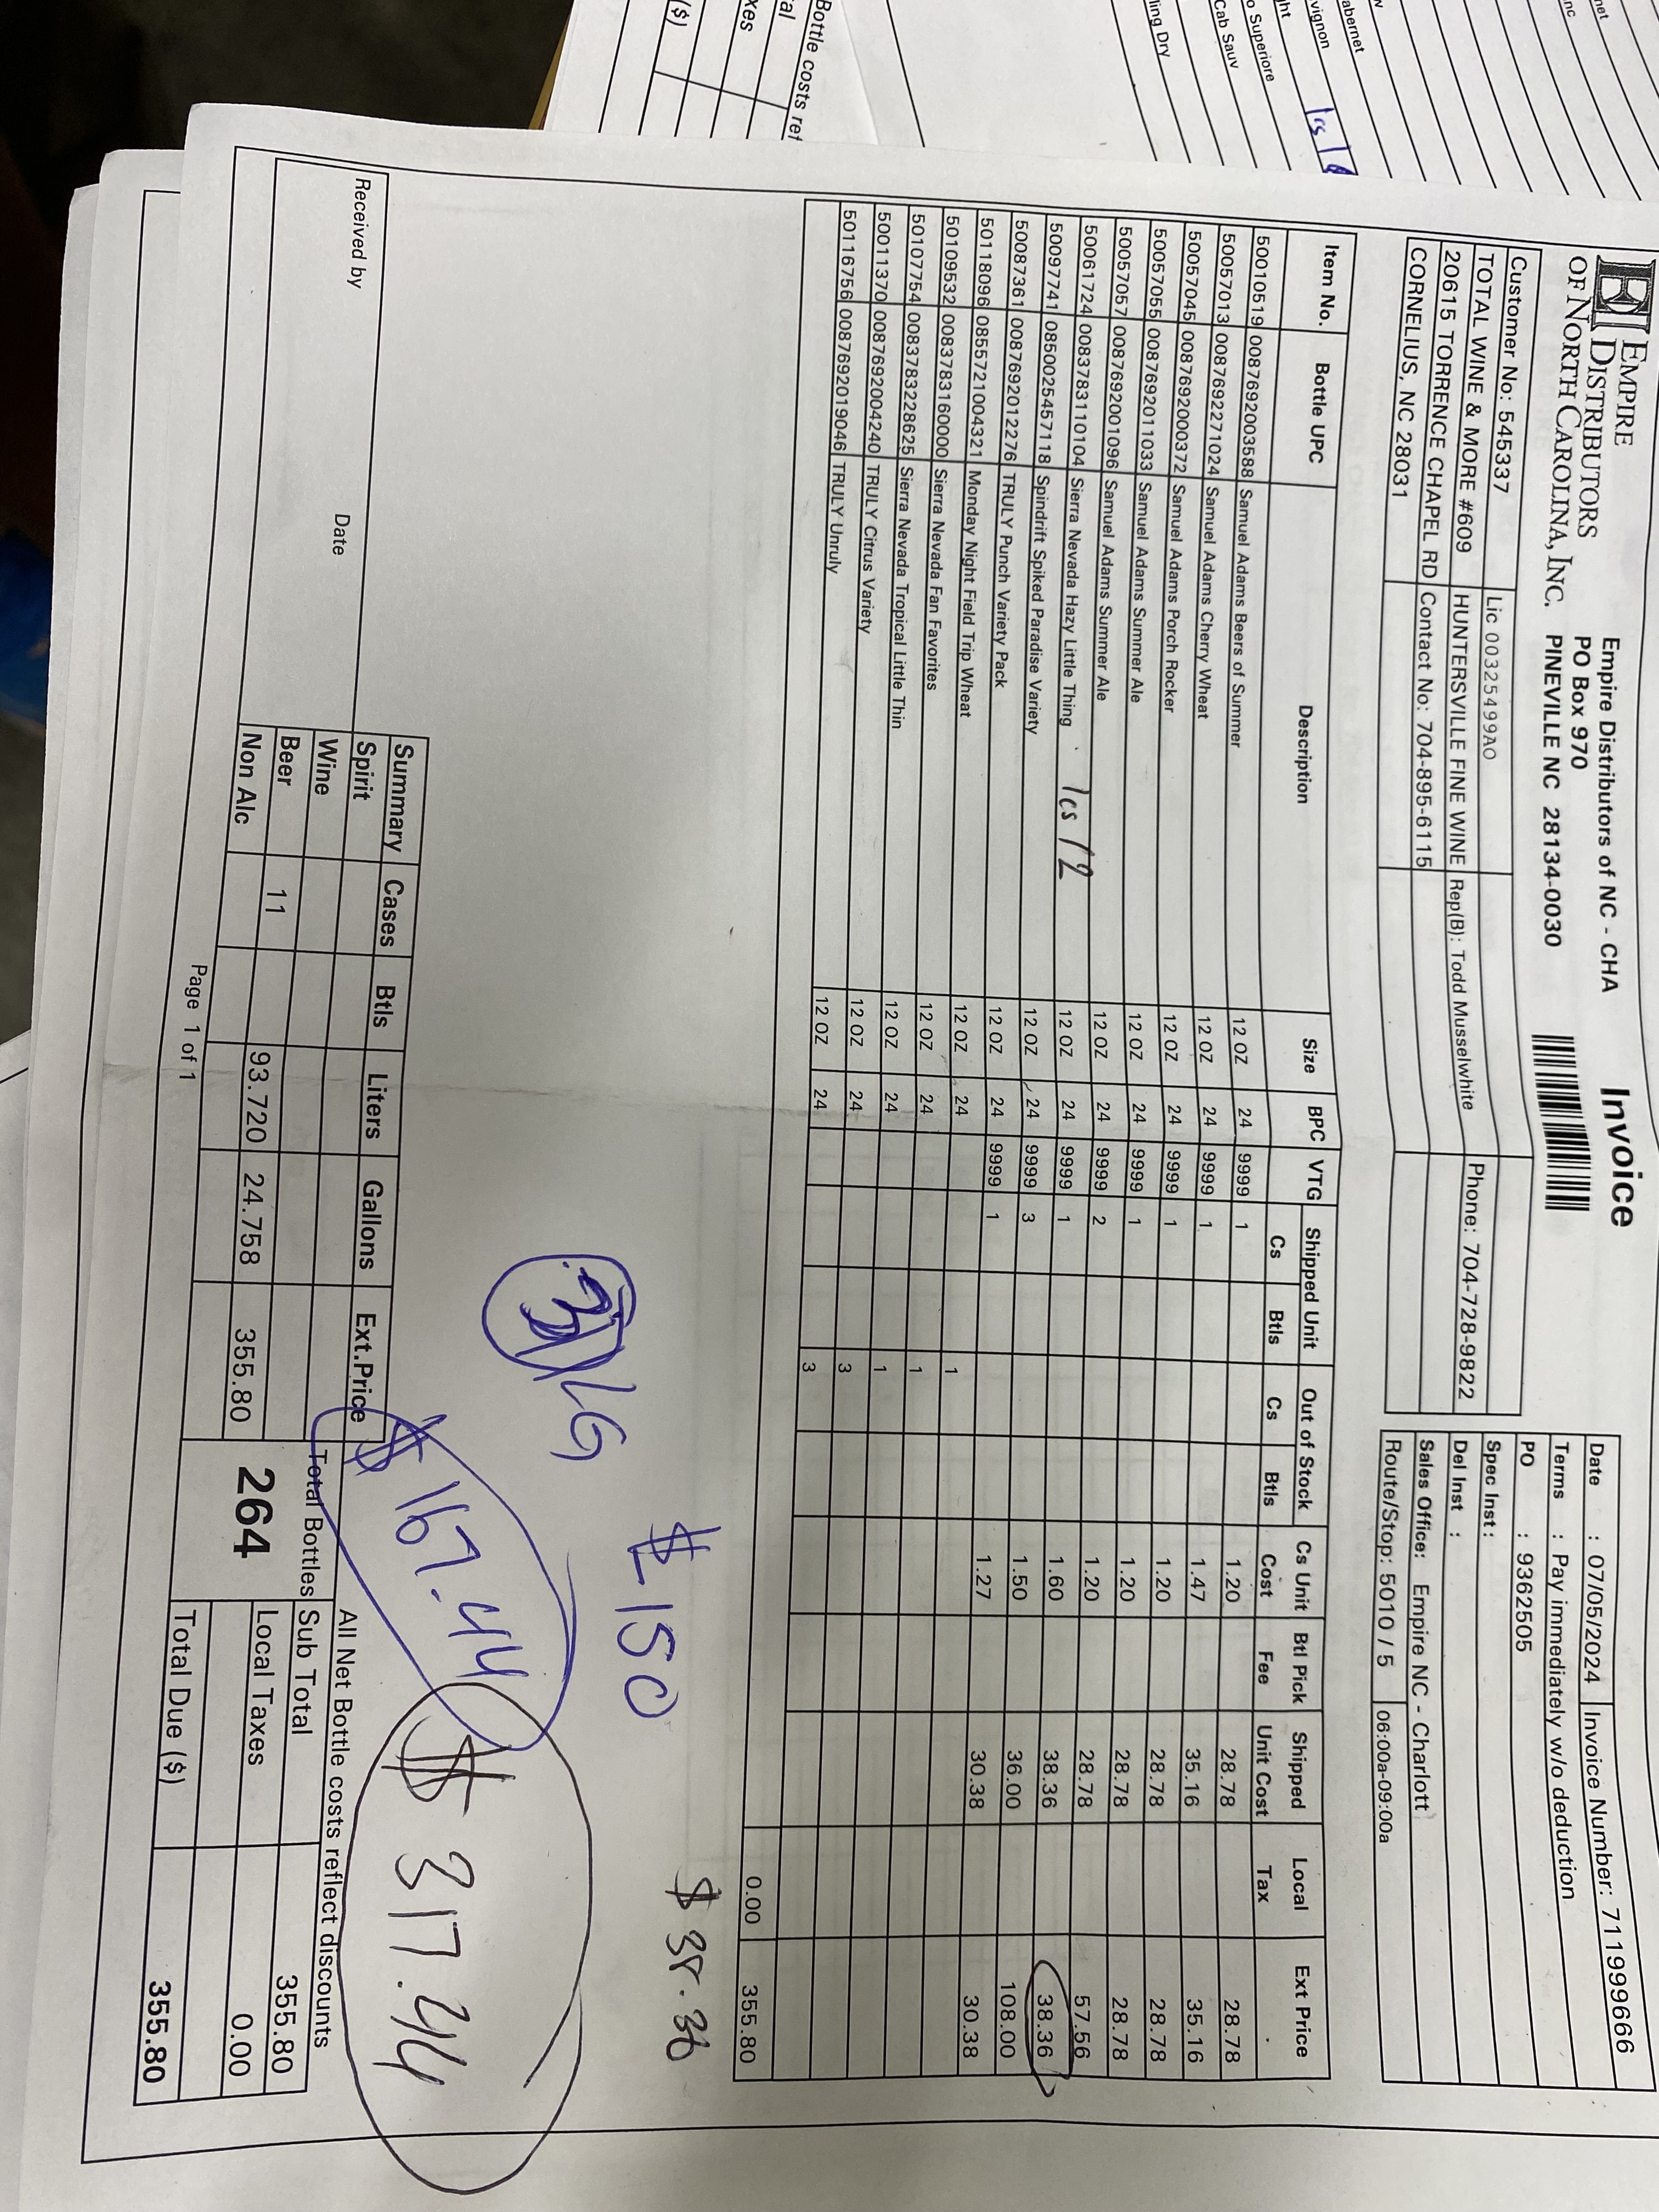 Bottle costs ref
al
xes
($)
net
nc
w
abernet
vignon
ht
o Superiore
Cab Sauv
ling Dry
1cs
EMPIRE
DISTRIBUTORS
OF NORTH CAROLINA, INC.
Empire Distributors of NC - CHA
PO Box 970
PINEVILLE NC 28134-0030
Invoice
Date : 07/05/2024 Invoice Number: 7119999666
Terms : Pay immediately w/o deduction
PO : 9362505
Spec Inst :
Del Inst :
Sales Office: Empire NC - Charlott
Route/Stop: 5010 / 5 06:00a-09:00a
Customer No: 545337 Lic 00325499AO
TOTAL WINE & MORE #609 HUNTERSVILLE FINE WINE Rep(B): Todd Musselwhite Phone: 704-728-9822
20615 TORRENCE CHAPEL RD Contact No: 704-895-6115
CORNELIUS, NC 28031
Item No. Bottle UPC Description Size BPC VTG Shipped Unit Cs Btls Out of Stock Cs Btls Cs Unit Cost Btl Pick Fee Shipped Unit Cost Local Tax Ext Price
50010519 0087692003588 Samuel Adams Beers of Summer 12 OZ 24 9999 1 1.20 28.78 28.78
50057013 0087692271024 Samuel Adams Cherry Wheat 12 OZ 24 9999 1 1.47 35.16 35.16
50057045 0087692000372 Samuel Adams Porch Rocker 12 OZ 24 9999 1 1.20 28.78 28.78
50057055 0087692011033 Samuel Adams Summer Ale 12 OZ 24 9999 1 1.20 28.78 28.78
50057057 0087692001096 Samuel Adams Summer Ale 12 OZ 24 9999 2 1.20 28.78 57.56
50061724 0083783110104 Sierra Nevada Hazy Little Thing 1cs 12 12 OZ 24 9999 1 1.60 38.36 38.36
50097741 0850025457118 Spindrift Spiked Paradise Variety 12 OZ 24 9999 3 1.50 36.00 108.00
50087361 0087692012276 TRULY Punch Variety Pack 12 OZ 24 9999 1 1.27 30.38 30.38
50118096 0855721004321 Monday Night Field Trip Wheat 12 OZ 24 1
50109532 0083783160000 Sierra Nevada Fan Favorites 12 OZ 24 1
50107754 0083783228625 Sierra Nevada Tropical Little Thin 12 OZ 24 1
50011370 0087692004240 TRULY Citrus Variety 12 OZ 24 3
50116756 0087692019046 TRULY Unruly 12 OZ 24 3
0.00 355.80
$ 38.36
$ 150
LG
$ 167.44
$ 317.44
Received by Date
Summary Cases Btls Liters Gallons Ext.Price
Spirit
Wine
Beer 11 93.720 24.758 355.80
Non Alc
Total Bottles
264
All Net Bottle costs reflect discounts
Sub Total 355.80
Local Taxes 0.00
Total Due ($) 355.80
Page 1 of 1